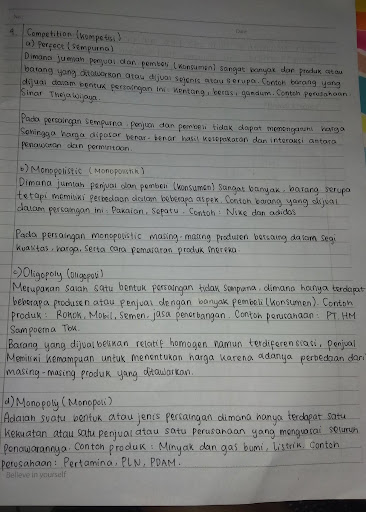 No.
Date
4. Competition (Kompetisi)
a) Perfect (Sempurna)
Dimana jumlah penjual dan pembeli (konsumen) sangat banyak dan produk atau
barang yang ditawarkan atau dijual sejenis atau serupa. Contoh barang yang
dijual dalam bentuk persaingan ini: Kentang, beras, gandum. Contoh perusahaan:
Sinar Thejawijaya.
Pada persaingan sempurna, penjual dan pembeli tidak dapat memengaruhi harga
Sehingga harga dipasar benar-benar hasil kesepakatan dan interaksi antara
penawaran dan permintaan.
b) Monopolistic (Monopolistik)
Dimana jumlah penjual dan pembeli (konsumen) sangat banyak, barang serupa
tetapi memiliki perbedaan dalam beberapa aspek. Contoh barang yang dijual
dalam persaingan ini: Pakaian, Sepatu. Contoh: Nike dan adidas
Pada persaingan monopolistic masing-masing produsen bersaing dalam segi
kualitas, harga, serta cara pemasaran produk mereka.
c) Oligopoly (Oligopoli)
Merupakan salah satu bentuk persaingan tidak sempurna, dimana hanya terdapat
beberapa produsen atau penjual dengan banyak pembeli (konsumen). Contoh
produk: Rokok, Mobil, Semen, jasa penerbangan. Contoh perusahaan: PT. HM
Sampoerna Tbk.
Barang yang dijual belikan relatif homogen namun terdiferensiasi, penjual
Memiliki kemampuan untuk menentukan harga karena adanya perbedaan dari
masing-masing produk yang ditawarkan.
d) Monopoly (Monopoli)
Adalah suatu bentuk atau jenis persaingan dimana hanya terdapat satu
kekuatan atau satu penjual atau satu perusahaan yang menguasai seluruh
Penawarannya. Contoh produk: Minyak dan gas bumi, Listrik. Contoh
perusahaan: Pertamina, PLN, PDAM.
Believe in yourself